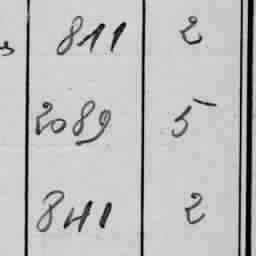 811 2
2089 5
841 2